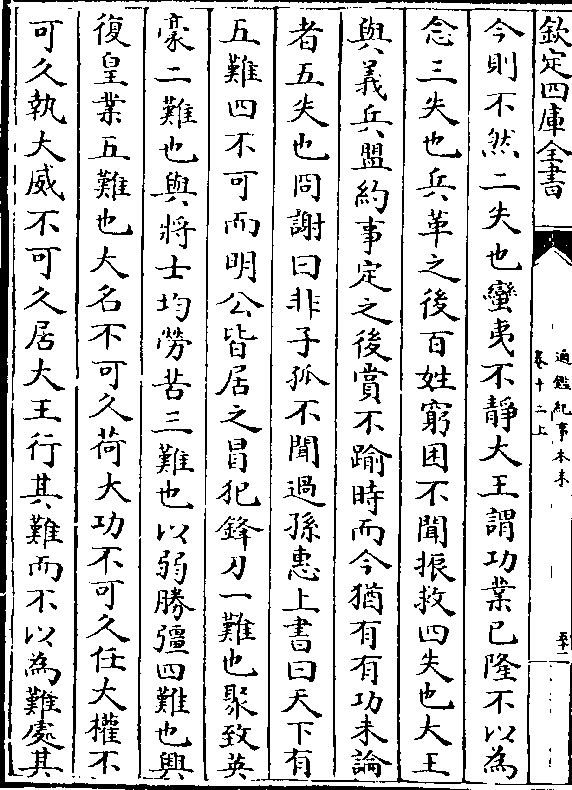 欽定四庫全書
通鑑紀事本末
卷十二上
今則不然二失也蠻夷不靜大王謂功業已隆不以為
念三失也兵革之後百姓窮困不聞振救四失也大王
與義兵盟約事定之後賞不踰時而今猶有有功未論
者五失也冏謝曰非子孤不聞過孫惠上書曰天下有
五難四不可而明公皆居之冒犯鋒刃一難也聚致英
豪二難也與將士均勞苦三難也以弱勝彊四難也興
復皇業五難也大名不可久荷大功不可久任大權不
可久執大威不可久居大王行其難而不以為難處其